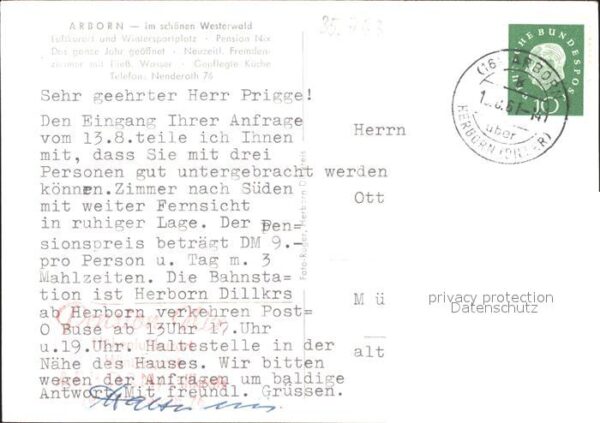 ARBORN — im schönen Westerwald
Luftkurort und Wintersportplatz · Pension Nix
Das ganze Jahr geöffnet · Neuzeitl. Fremden-
zimmer mit fließ. Wasser · Gepflegte Küche
Telefon: Nenderoth 76
Sehr geehrter Herr Prigge!
Den Eingang Ihrer Anfrage
vom 13.8.teile ich Ihnen
mit, dass Sie mit drei
Personen gut untergebracht werden
können.Zimmer nach Süden
mit weiter Fernsicht
in ruhiger Lage. Der Pen=
sionspreis beträgt DM 9.-
pro Person u. Tag m. 3
Mahlzeiten. Die Bahnsta=
tion ist Herborn Dillkrs
ab Herborn verkehren Post=
O Buse ab 13Uhr 17.Uhr
u.19Uhr. Haltestelle in der
Nähe des Hauses. Wir bitten
wegen der Anfragen um baldige
Antwort Mit freundl. Grüssen.
Herrn
Ott
Mü
alt
DEUTSCHE BUNDESPOST
10
(16) ARBORN
über
HERBORN (DILLKR)
privacy protection
Datenschutz